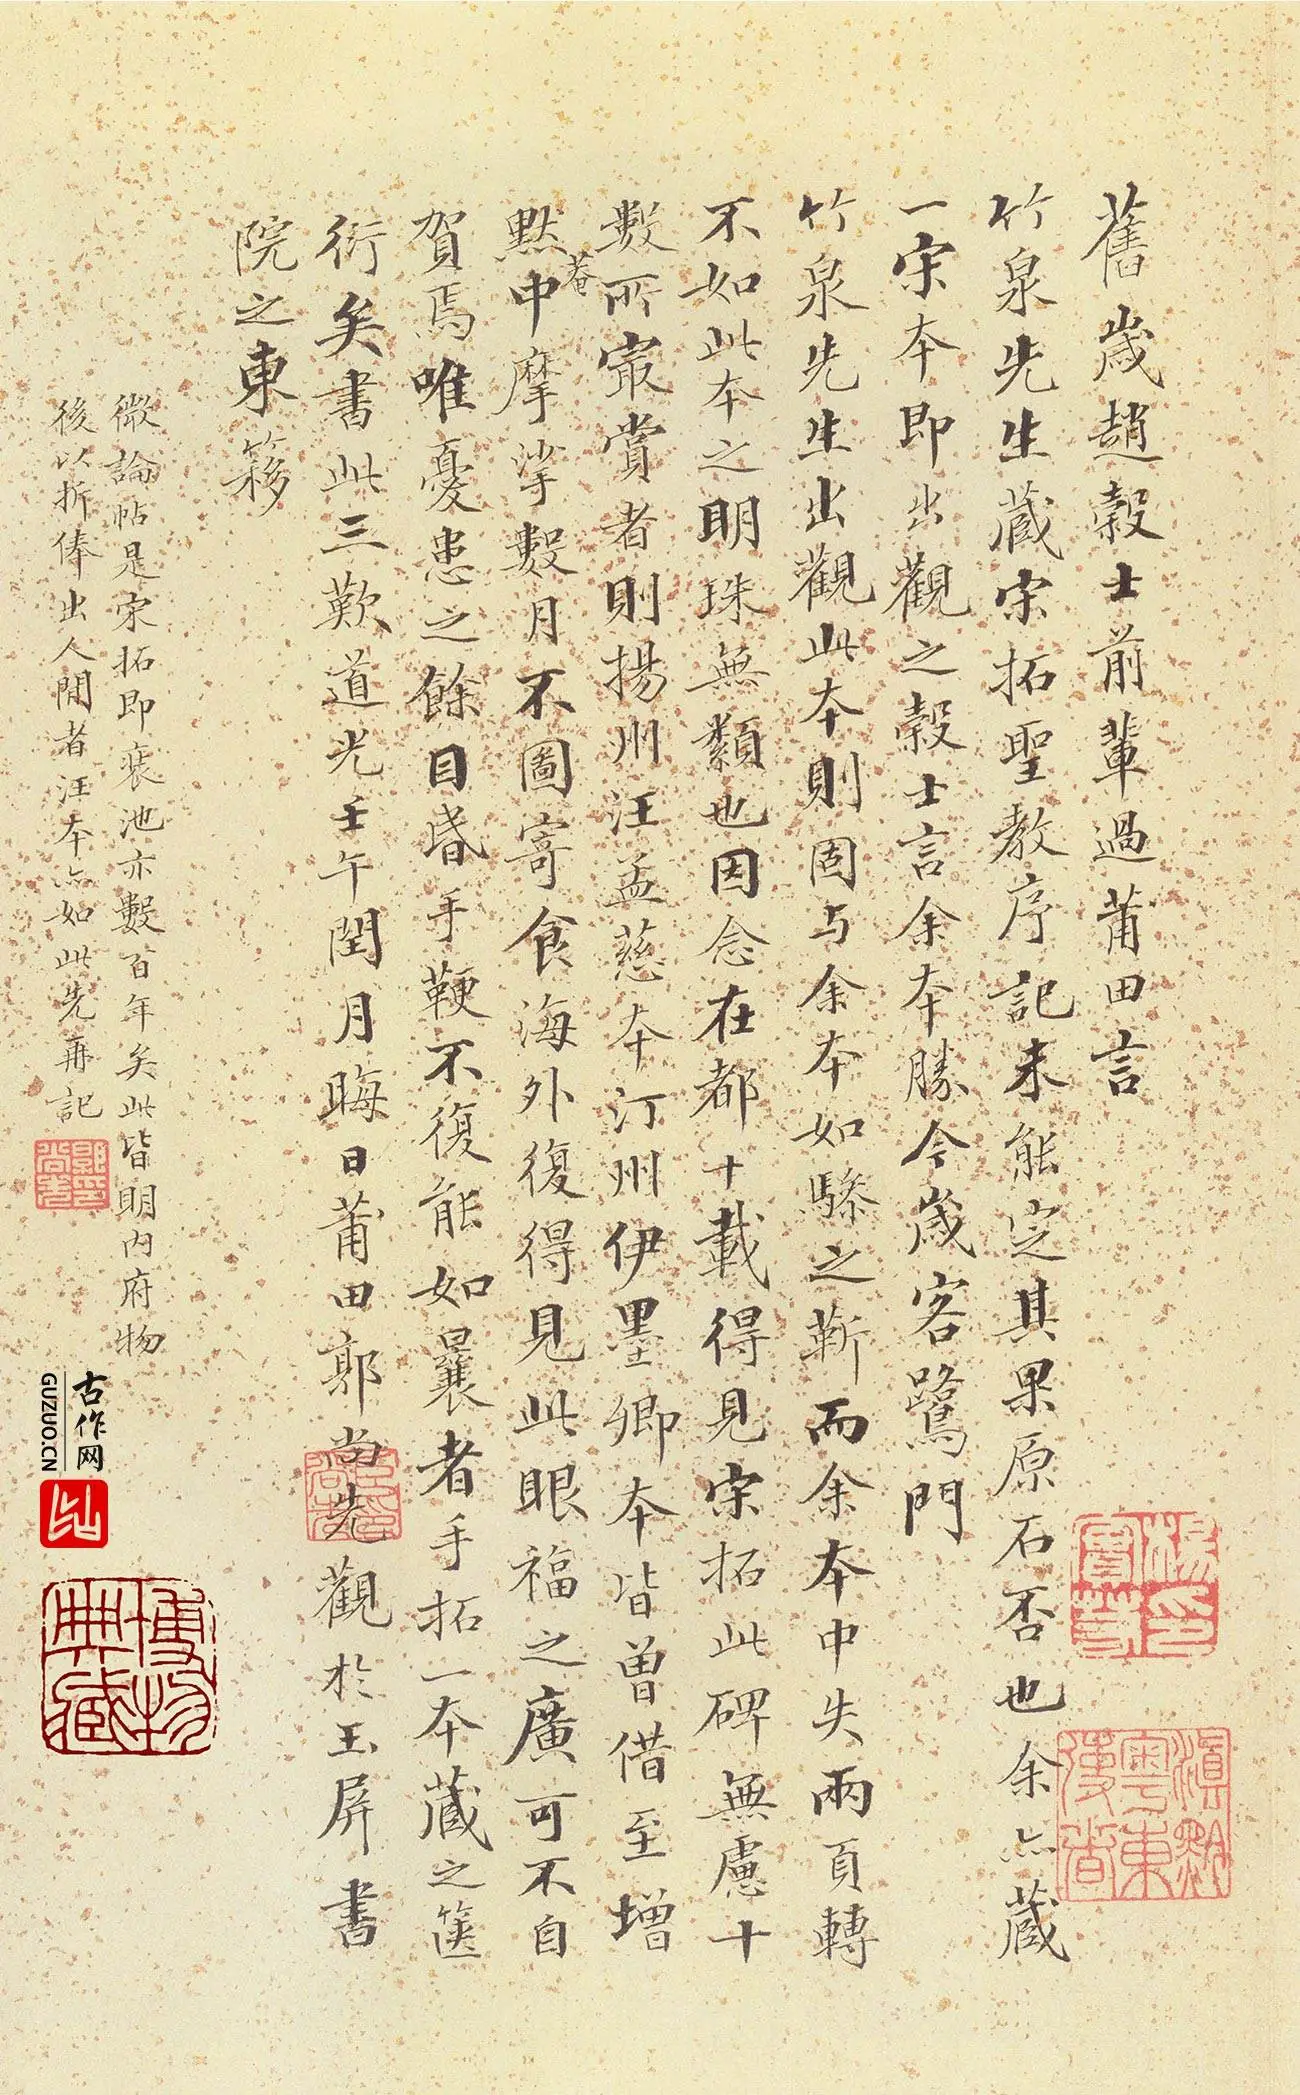 舊歲趙穀士前輩過莆田言
竹泉先生藏宋拓聖教序記未能定其果原石否也余亦藏
一宋本即出觀之穀士言余本勝今歲客鷺門
竹泉先生出觀此本則固與余本如驂之靳而余本中失兩頁轉
不如此本之明珠無纇也因念在都十載得見宋拓此碑無慮十
數所最賞者則揚州汪孟慈本汀州伊墨卿本皆曾借至增
默菴中摩挲數月不圖寄食海外復得見此眼福之廣可不自
賀焉唯憂患之餘目昏手鞭不復能如曩者手拓一本藏之篋
衍矣書此三歎道光壬午閏月晦日莆田郭尚先觀於玉屏書
院之東簃
微論帖是宋拓即裝池亦數百年矣此皆明內府物
後以折俸出人間者汪本亦如此先再記
古作网
GUZUO.CN
博物
典藏